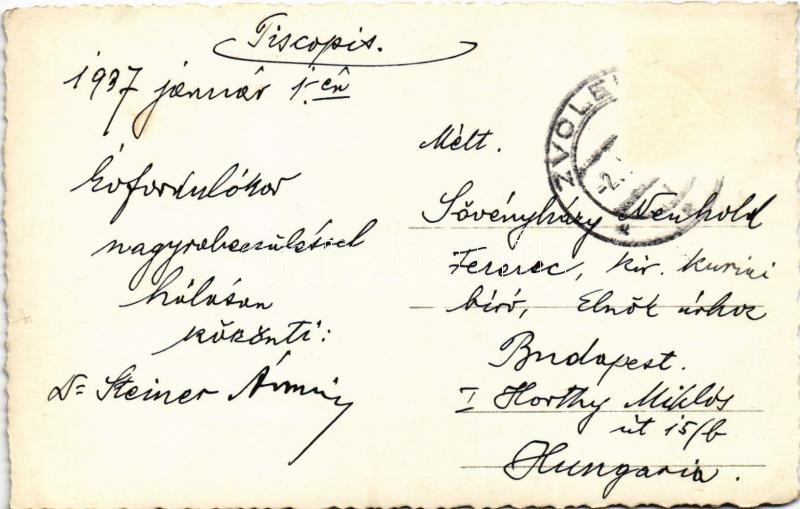 Tiscopis.
1937 január 1-én
Évfordulókor
nagyrabecsüléssel
hálásan
köszönti:
Dr Steiner Ármin
ZVOLE
-2.
Mélt.
Sövényházy Neuhold
Ferenc, kir. kuriai
bíró, Elnök úrhoz
Budapest.
I Horthy Miklós
út 15/b
Hungaria.